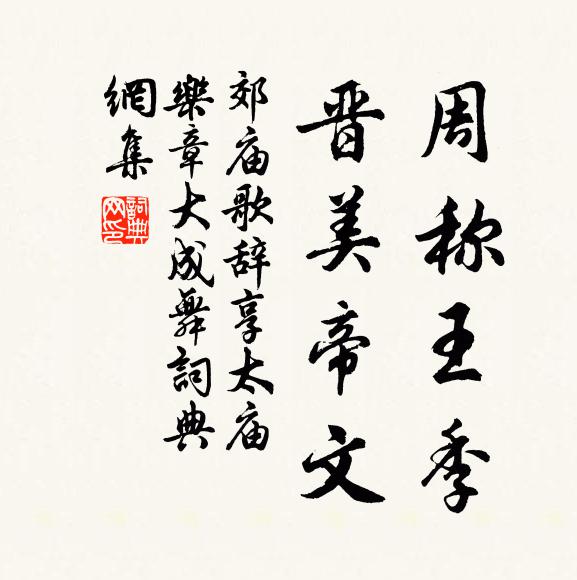 周称王季
晋美帝文
郊庙歌辞享太庙
樂章大成舞詞典
網集
詞典网印